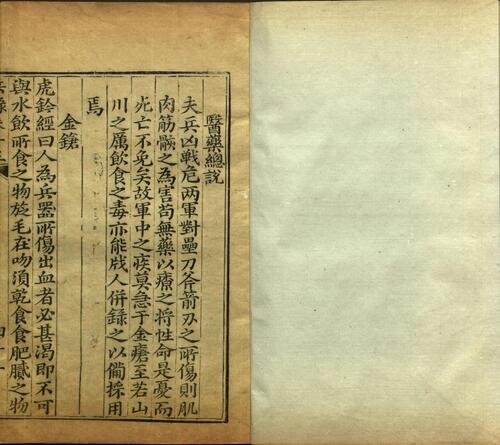 醫藥總說
夫兵凶戰危两軍對壘刀斧箭刃之所傷則肌
肉筋骸之為害苟無藥以療之將性命是憂而
死亡不免矣故軍中之疾莫急于金瘡至若山
川之厲飲食之毒亦能戕人併錄之以備採用
焉
金鎗
虎鈐經曰人為兵器所傷出血者必甚渴即不可
與水飲所食之物旋毛在吻須乾食食肥膩之物